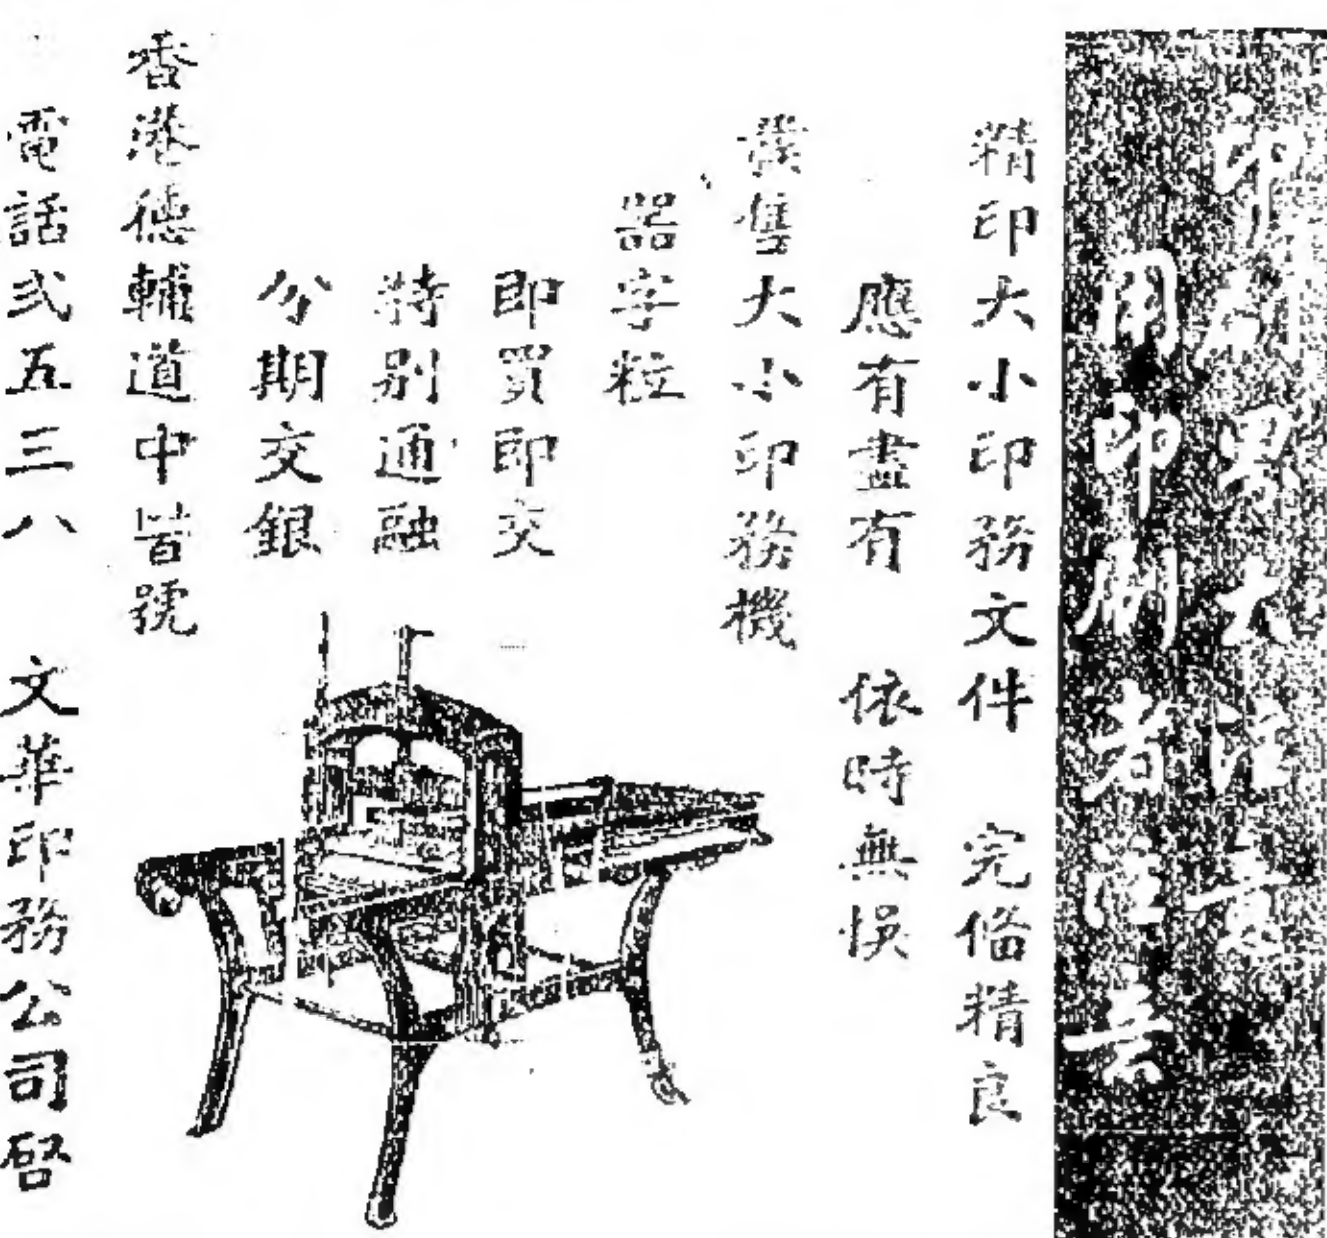 印刷界大注意
用印刷者注意
精印大小印務文件 完偹精良
應有盡有 依時無悞
發售大小印務機
器字粒
即買即交
特別通融
分期交銀
香港德輔道中號
電話弍五三八 文華印務公司啓